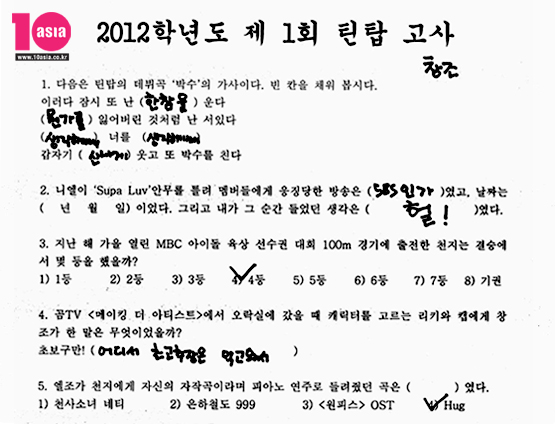 10asia
www.10asia.co.kr
2012학년도 제 1회 틴탑 고사
창조
1. 다음은 틴탑의 데뷔곡 '박수'의 가사이다. 빈 칸을 채워 봅시다.
이러다 잠시 또 난 (한참을) 운다
(뭔가를) 잃어버린 것처럼 난 서있다
(생각해써) 너를 (생각해써)
갑자기 (신나게) 웃고 또 박수를 친다
2. 니엘이 'Supa Luv'안무를 틀려 멤버들에게 응징당한 방송은 (SBS인가)였고, 날짜는
( 년 월 일) 이었다. 그리고 내가 그 순간 들었던 생각은 ( 헐! )였다.
3. 지난 해 가을 열린 MBC 아이돌 육상 선수권 대회 100m 경기에 출전한 천지는 결승에
서 몇 등을 했을까?
1) 1등 2) 2등 3) 3등 4) 4등 5) 5등 6) 6등 7) 7등 8) 기권
4. 곰TV <메이킹 더 아티스트>에서 오락실에 갔을 때 캐릭터를 고르는 리키와 캡에게 창
조가 한 말은 무엇이었을까?
초보구만! (어디서 초고추장은 먹고와서 )
5. 엘조가 천지에게 자신의 자작곡이라며 피아노 연주로 들려줬던 곡은 ( ) 였다.
1) 천사소녀 네티 2) 은하철도 999 3) <원피스> OST 4) Hug